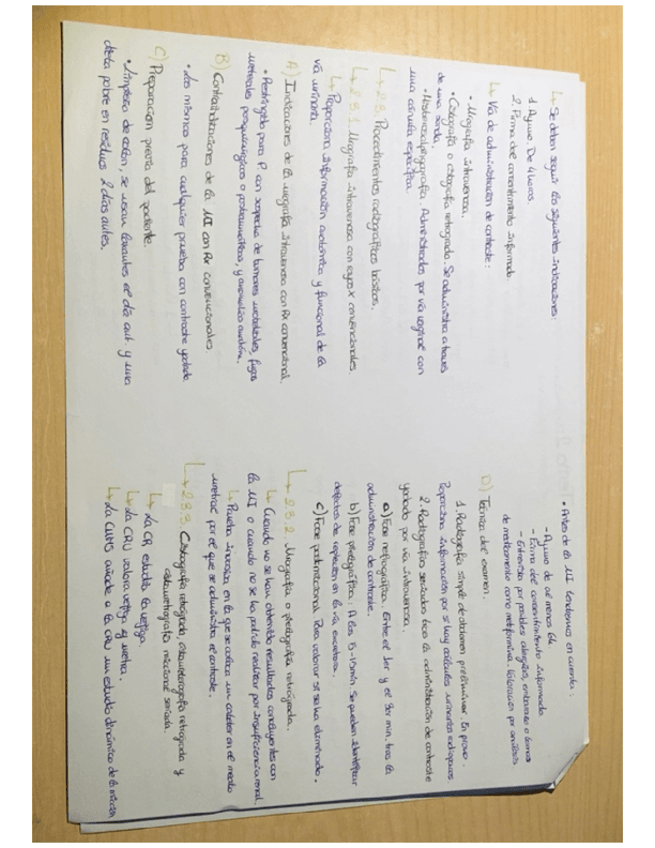 ↳ Se deben seguir las siguientes indicaciones:
1. Ayuno. De 4 horas.
2. Firma del consentimiento informado.
↳ Vía de administración de contraste:
• Urografía intravenosa.
• Cistografía o retrógrada. Se administra a través
de una sonda.
• Histerosalpingografía. Administrados por vía vaginal con
una cánula específica.
↳ 2.3. Procedimientos radiográficos básicos.
↳ 2.3.1. Urografía intravenosa con rayos-x convencionales
↳ Proporciona información anatómica y funcional de la
vía urinaria.
A) Indicaciones de la urografía intravenosa con Rx convencional.
• Restringida para P. con sospecha de tumores uroteliales, fugas
ureterales posquirúrgicas o postraumáticas, y
B) Contraindicaciones de la UI con Rx convencionales.
• Las mismas para cualquier prueba con contraste yodado
C) Preparación previa del paciente.
• Limpieza de colon, se usan laxantes el día ant. y una
dieta pobre en residuos 2 días antes.
• Antes de la UI tendremos en cuenta:
- Ayuno de al menos 6h
- Firma del consentimiento informado
- Entrevista por posibles alergias, embarazo o toma
de medicamento como metformina. Valoración por analisis
D) Técnica del examen.
1. Radiografía simple de abdomen preliminar. En prono.
Proporciona información por si hay cálculos urinarios radiopacos
2. Radiografías seriadas tras la administración de contraste
yodado por vía intravenosa.
a) Fase nefrográfica. Entre el 1er y el 3er min. tras la
administración de contraste.
b) Fase pielográfica: A los 5-15min Se pueden identificar
defectos de repleción en la vía excretora.
c) Fase postmiccional. Para valorar si se ha eliminado.
↳ 2.3.2. Urografía o pielografía retrógrada.
↳ Cuando no se han obtenido resultados concluyentes con
la UI o cuando no se ha podido realizar por insuficiencia renal.
↳ Prueba invasiva en la que se coloca un catéter en el meato
uretral por el que se administra el contraste.
↳ 2.3.3. Cistografía retrógrada, cistouretrografía retrógrada y
cistouretrografía miccional seriada.
↳ La CR estudia la vejiga
↳ La CRU valora vejiga y uretra.
↳ La CUMS añade a la CRU un estudio dinámico de la micción